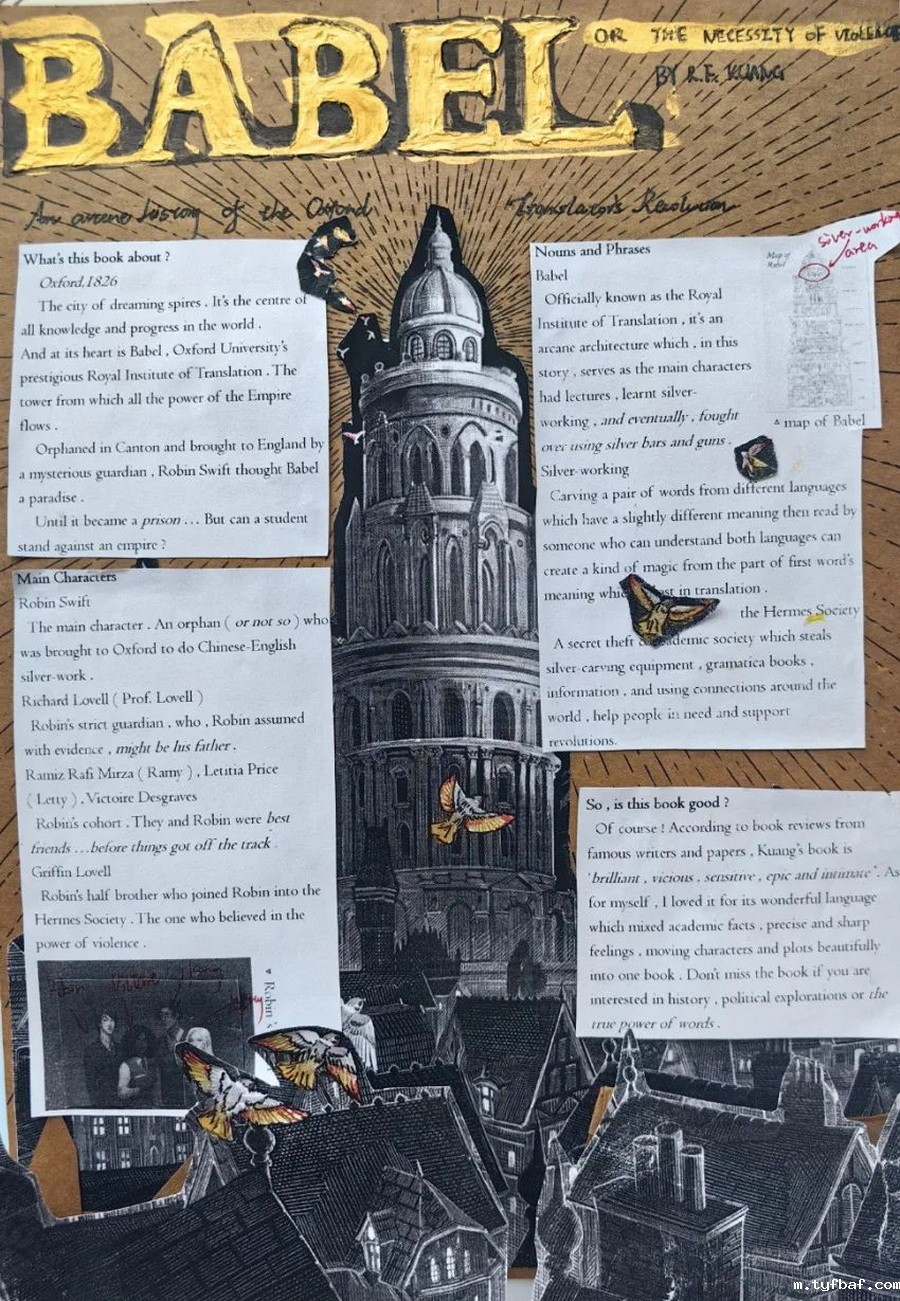 BABEL,
OR THE NECESSITY OF VIOLENCE
BY R.F. KUANG
An arcane history of the Oxford Translator's Revolution
What's this book about ?
Oxford,1826
The city of dreaming spires . It's the centre of
all knowledge and progress in the world .
And at its heart is Babel , Oxford University's
prestigious Royal Institute of Translation . The
tower from which all the power of the Empire
flows .
Orphaned in Canton and brought to England by
a mysterious guardian , Robin Swift thought Babel
a paradise .
Until it became a prison … But can a student
stand against an empire ?
Main Characters
Robin Swift
The main character . An orphan ( or not so ) who
was brought to Oxford to do Chinese-English
silver-work .
Richard Lovell ( Prof. Lovell )
Robin's strict guardian , who , Robin assumed
with evidence , might be his father .
Ramiz Rafi Mirza ( Ramy ) , Letitia Price
( Letty ) , Victoire Desgraves
Robin's cohort . They and Robin were best
friends …before things got off the track .
Griffin Lovell
Robin's half brother who joined Robin into the
Hermes Society . The one who believed in the
power of violence .
Robin
Nouns and Phrases
Babel
Officially known as the Royal
Institute of Translation , it's an
arcane architecture which , in this
story , serves as the main characters
had lectures , learnt silver-
working , and eventually , fought
over using silver bars and guns .
silver-working
area
Map of
Babel
▵ map of Babel
Silver-working
Carving a pair of words from different languages
which have a slightly different meaning then read by
someone who can understand both languages can
create a kind of magic from the part of first word's
meaning in translation .
the Hermes Society
A secret theft academic society which steals
silver-carving equipment , gramatica books ,
information , and using connections around the
world , help people in need and support
revolutions.
So , is this book good ?
Of course ! According to book reviews from
famous writers and papers , Kuang's book is
'brilliant , vicious , sensitive , epic and intimate' . As
for myself , I loved it for its wonderful language
which mixed academic facts , precise and sharp
feelings , moving characters and plots beautifully
into one book . Don't miss the book if you are
interested in history , political explorations or the
true power of words .
m.tyfbaf.com